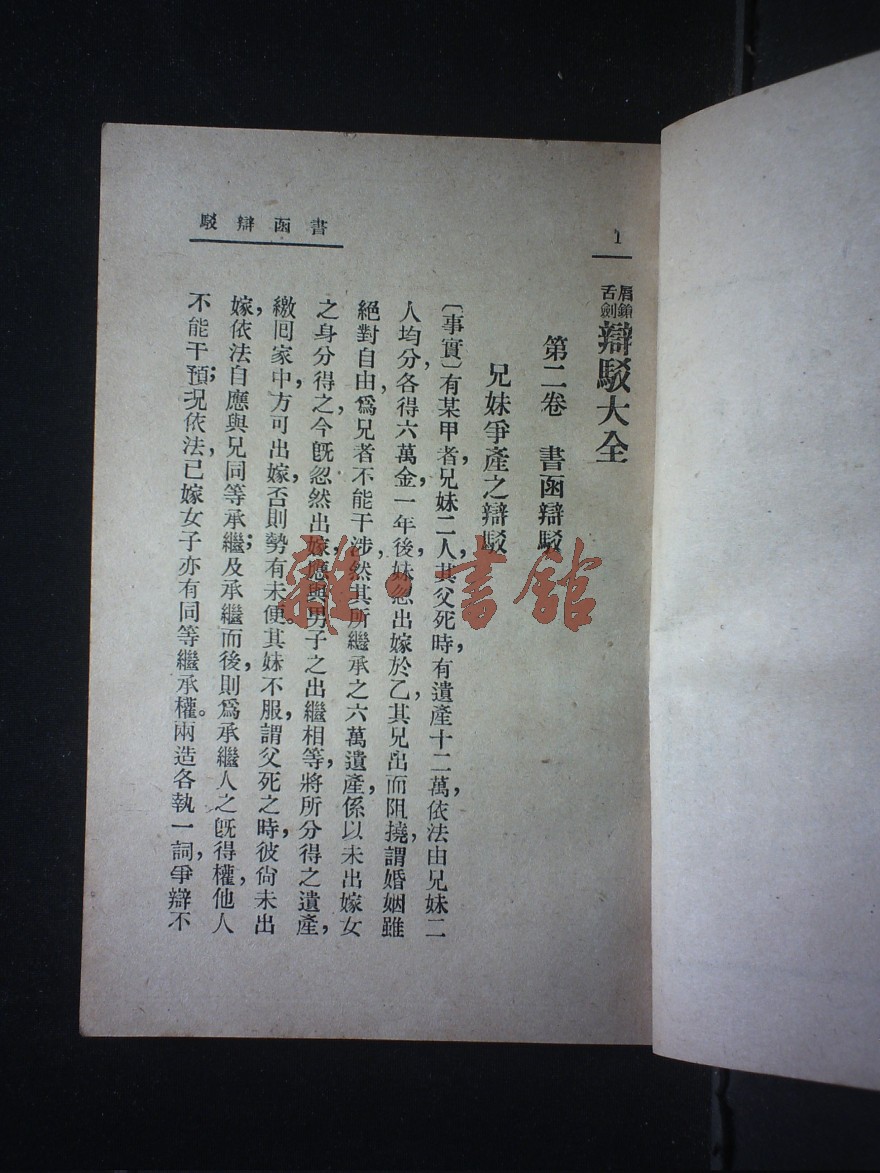 書函辯駁
1
脣鎗舌劍辯駁大全
第二卷　書函辯駁
兄妹爭產之辯駁
〔事實〕有某甲者，兄妹二人，其父死時，有遺產十二萬，依法由兄妹二
人均分，各得六萬金，一年後，妹忽出嫁於乙，其兄出而阻撓，謂婚姻雖
絕對自由，爲兄者不能干涉，然其所繼承之六萬遺產，係以未出嫁女
之身分得之，今旣忽然出嫁，應與男子之出繼相等，將所分得之遺產，
繳回家中，方可出嫁，否則勢有未便。其妹不服，謂父死之時，彼尙未出
嫁，依法自應與兄同等承繼；及承繼而後，則爲承繼人之旣得權，他人
不能干預；况依法，已嫁女子亦有同等繼承權。兩造各執一詞，爭辯不
雜·書館